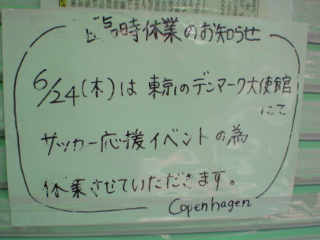 臨時休業のお知らせ
6/24(木)は東京のデンマーク大使館
にて
サッカー応援イベントの為
休業させていただきます。
Copenhagen